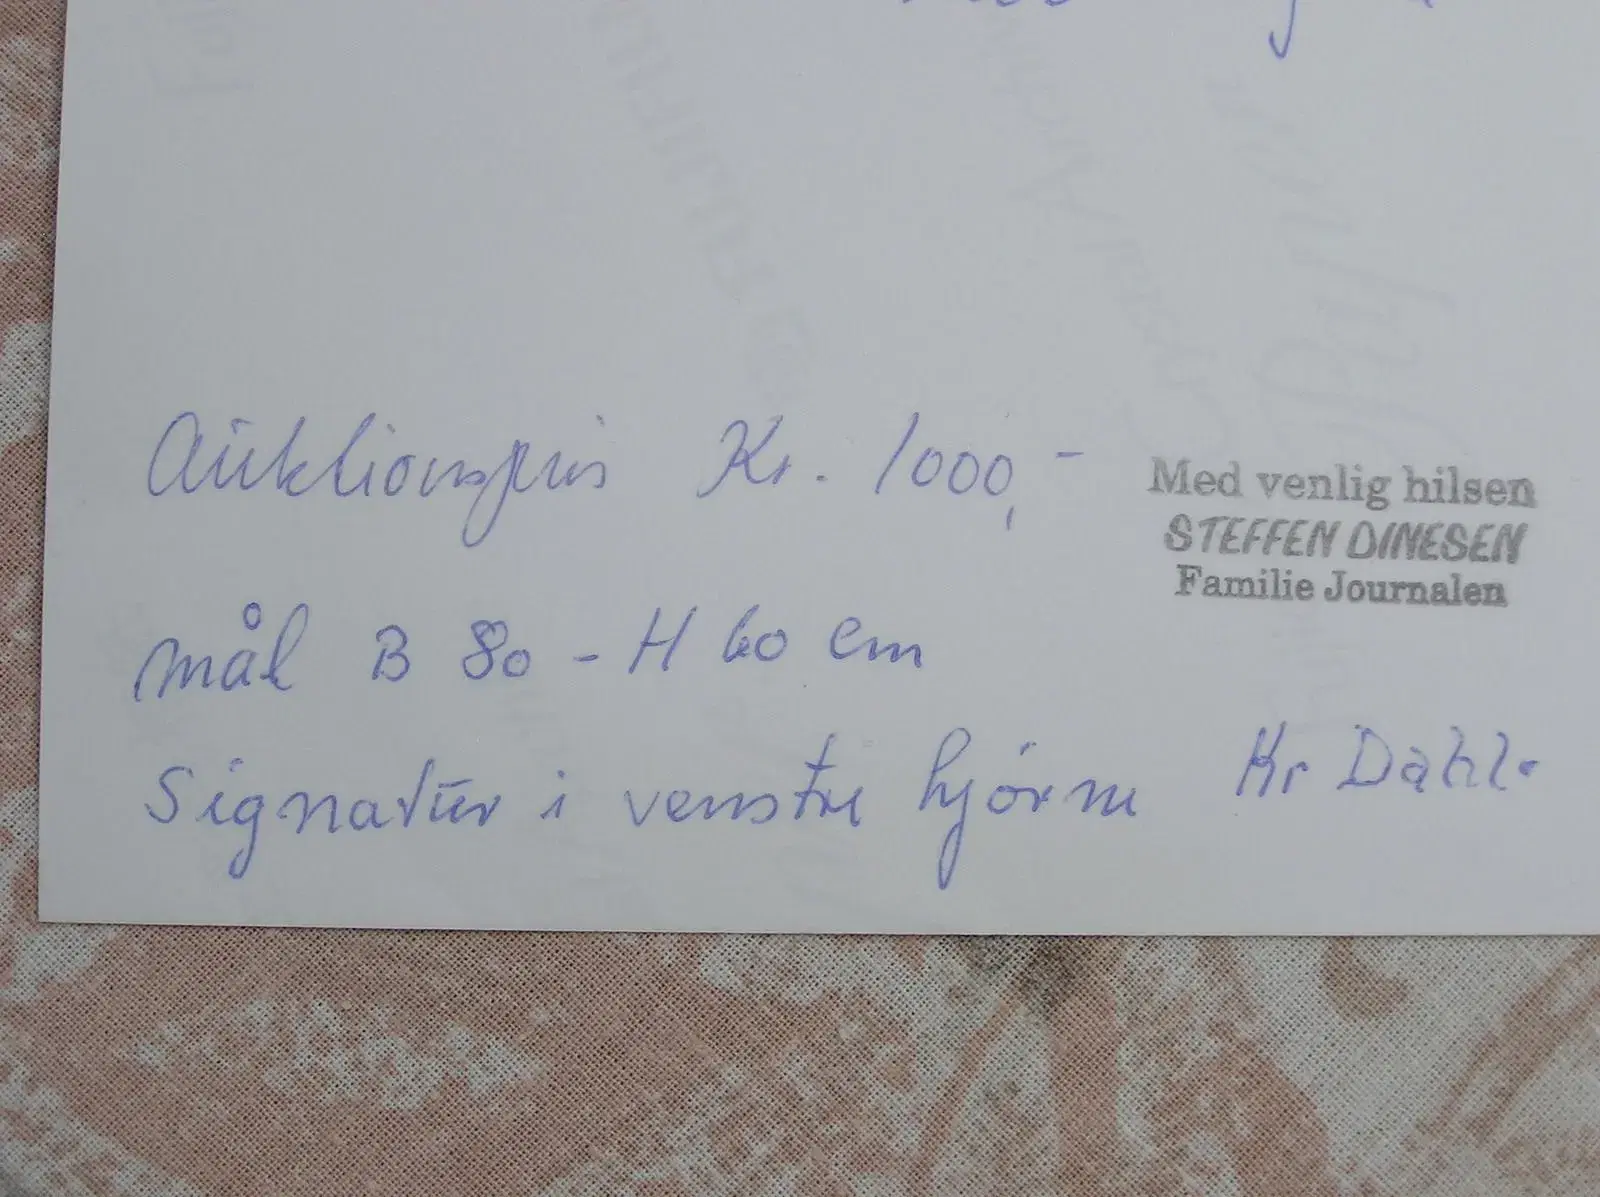 Auktionspris Kr. 1000,-
Med venlig hilsen
STEFFEN DINESEN
Familie Journalen
mål B 80 - H 60 cm
Signatur i venstre hjørne Kr Dahl.